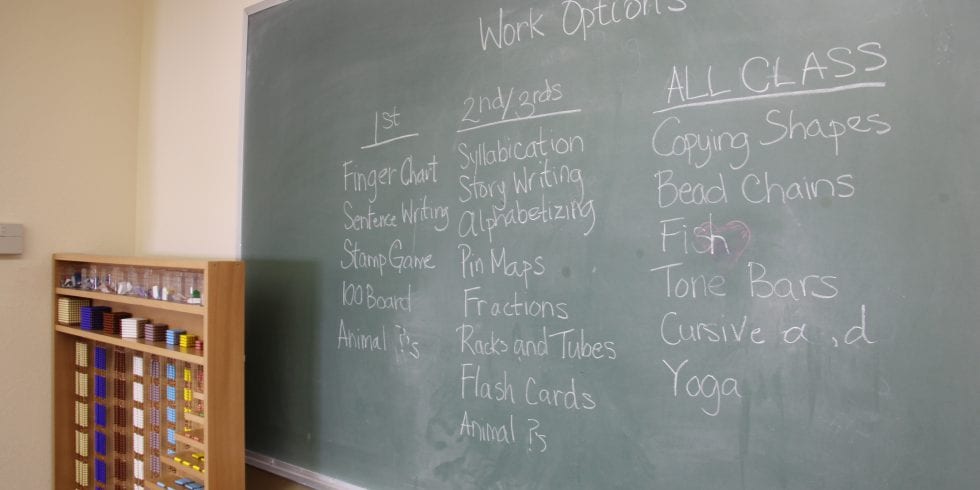 Work Options
1st
Finger Chart
Sentence Writing
Stamp Game
100 Board
Animal ?'s
2nd/3rds
Syllabication
Story Writing
Alphabetizing
Pin Maps
Fractions
Racks and Tubes
Flash Cards
Animal ?'s
ALL CLASS
Copying Shapes
Bead Chains
Fish
Tone Bars
Cursive a, d
Yoga